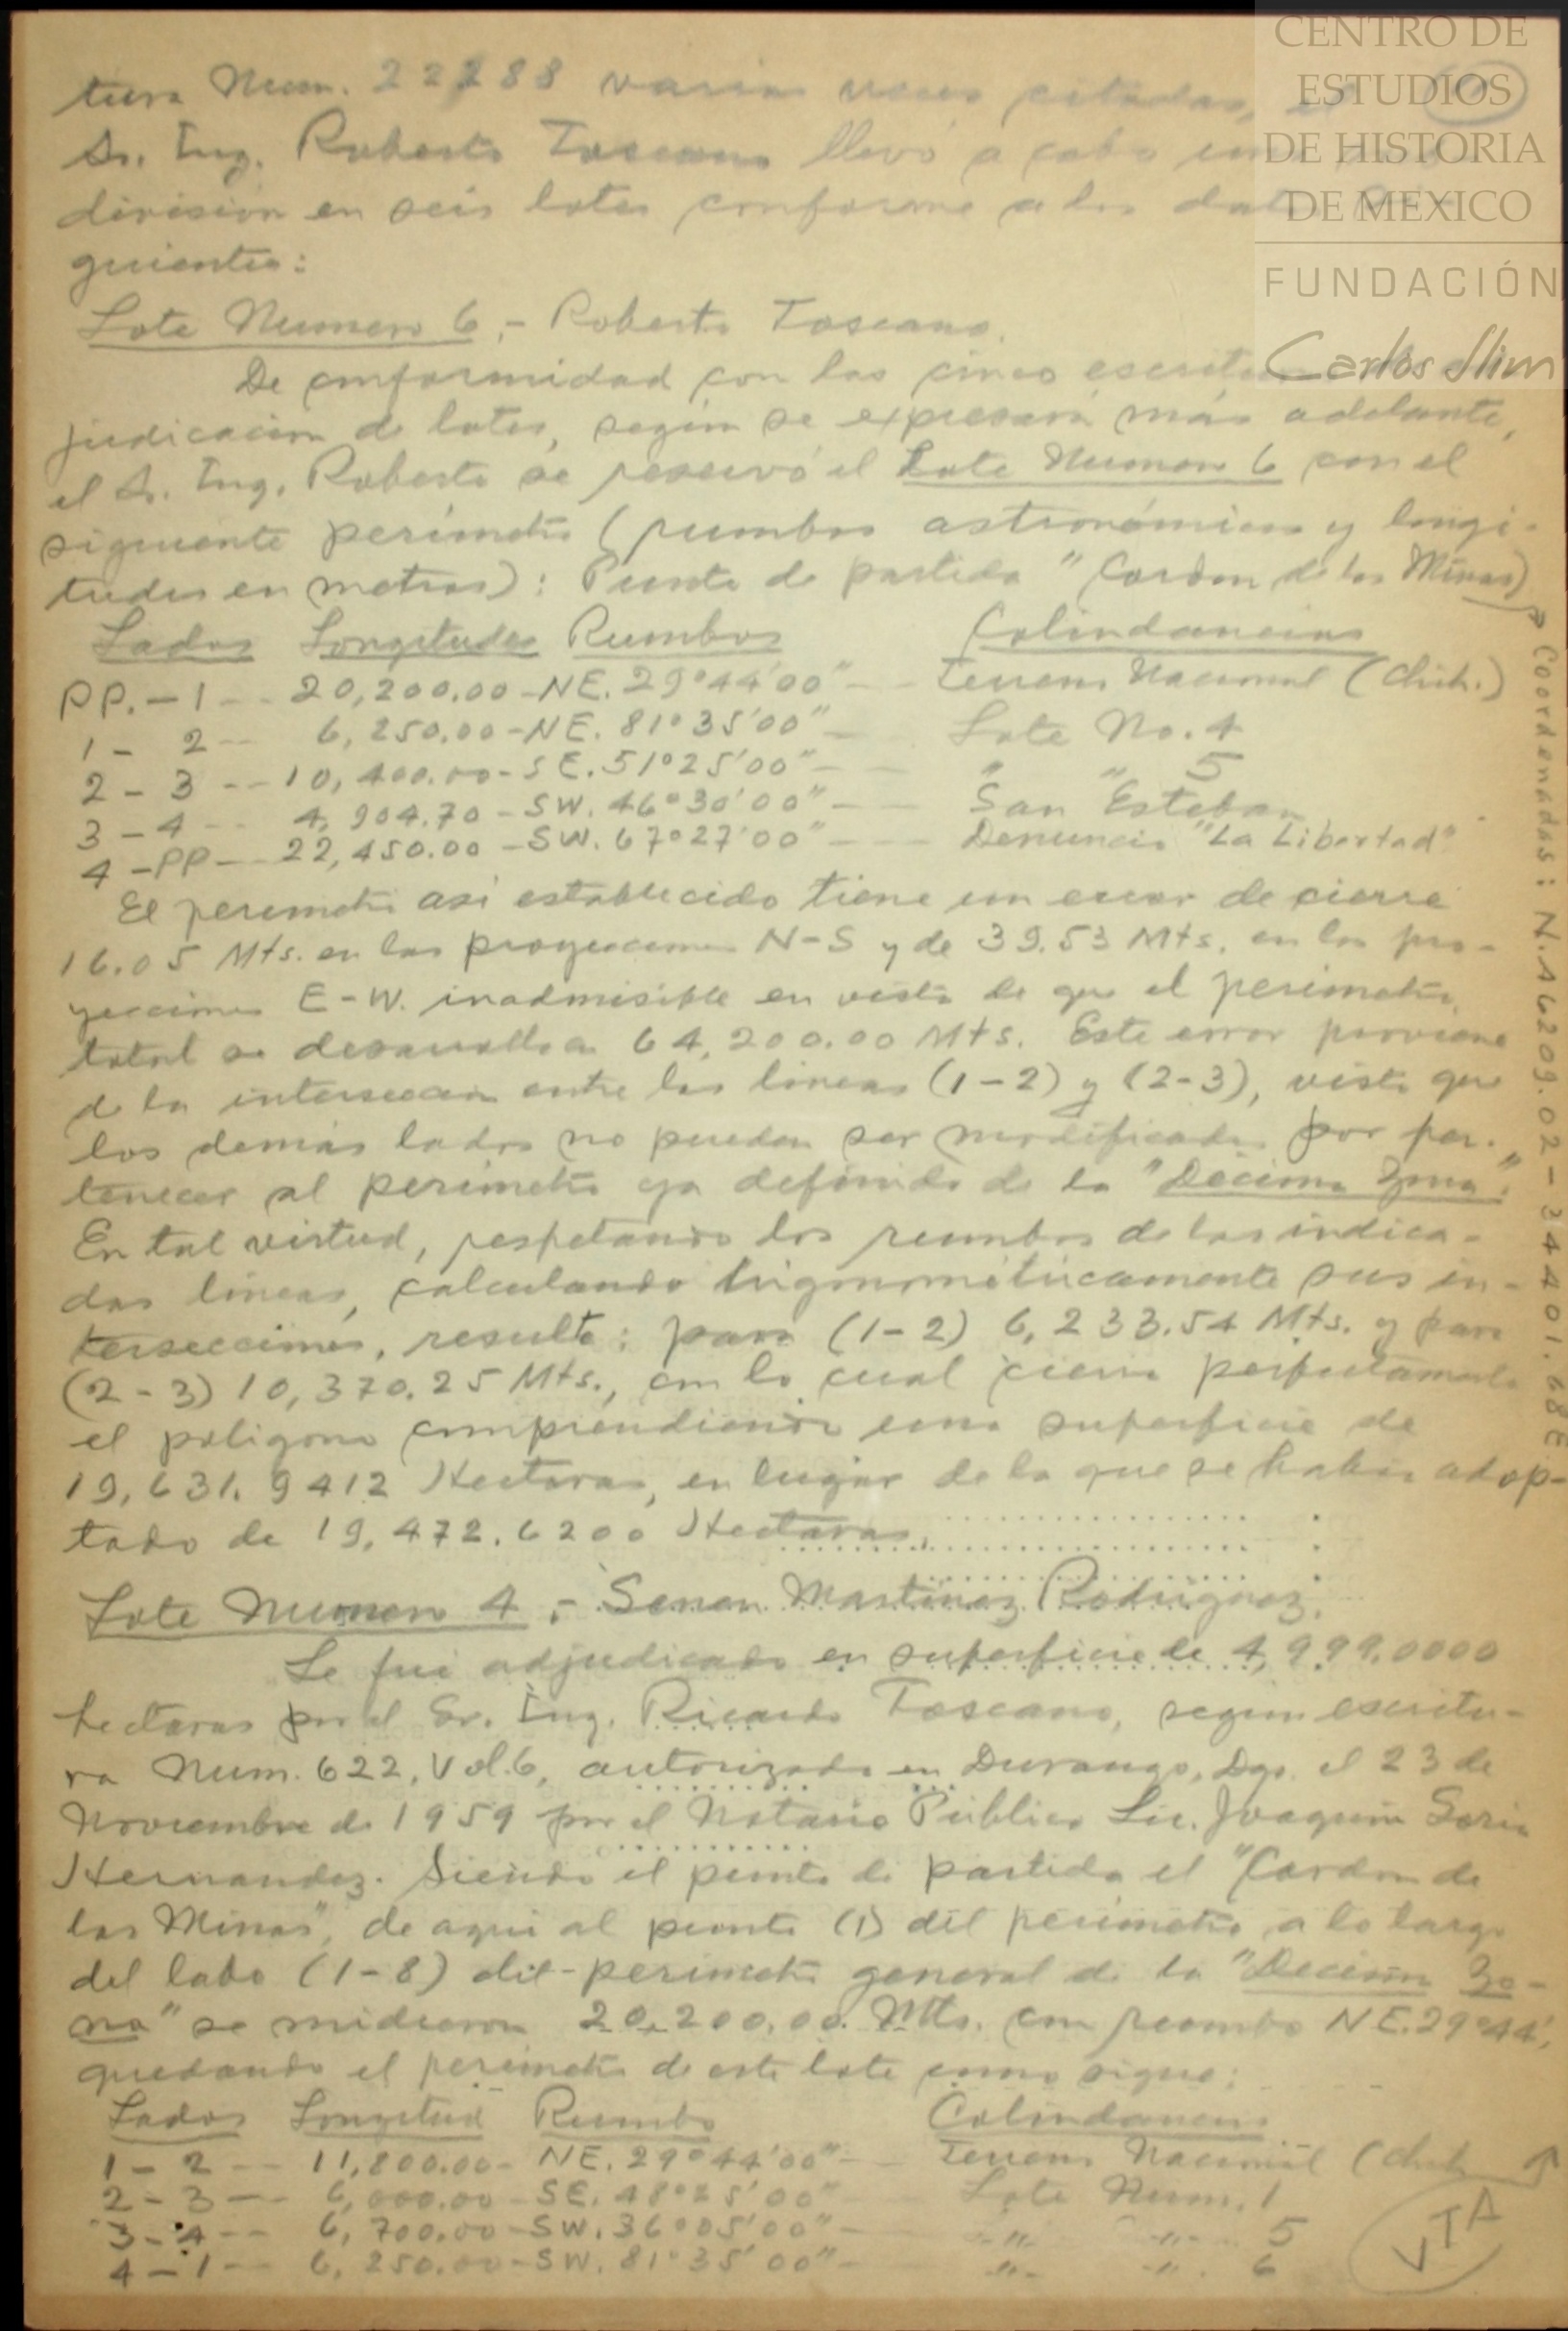 CENTRO DE
ESTUDIOS
DE HISTORIA
DE MEXICO
FUNDACIÓN
Carlos Slim
tura Num. 22288 varias veces citadas, el
Sr. Ing. Roberto Toscano llevó a cabo
división en seis lotes conforme a los
guientes:
Lote Numero 6.- Roberto Toscano.
De conformidad con las cinco
judicación de lotes, según se expresará más adelante,
el Sr. Ing. Roberto se reservó el Lote Numero 6 con el
siguiente perímetro (rumbos astronómicos y longi-
tudes en metros): Punto de partida "Cordon de las Minas)
Lados Longitudes Rumbos Colindancias
PP.-1-- 20,200.00-NE. 29°44'00"-- Terreno Nacional (Chih.)
1 - 2-- 6,250.00-NE. 81°35'00"- Lote No. 4
2 - 3 -- 10,400.00-SE. 51°25'00"-- " " 5
3 - 4 -- 4,904.70-SW. 46°30'00"-- San Esteban
4 -PP-- 22,450.00-SW. 67°27'00"-- Denuncio "La Libertad"
El perimetro asi establecido tiene un error de cierre
16.05 Mts. en las proyecciones N-S y de 39.53 Mts. en las pro-
yecciones E-W. inadmisible en vista de que el perimetro
total se desarrolla a 64,200.00 Mts. Este error proviene
de la interseccion entre las lineas (1-2) y (2-3), visto que
los demás lados no pueden ser modificados por per-
tenecer al perímetro ya definido de la "Decima Zona".
En tal virtud, respetando los rumbos de las indica-
das lineas, calculando trigonométricamente sus in-
tersecciones, resulta: para (1-2) 6,233.54 Mts. y para
(2-3) 10,370.25 Mts., con lo cual cierra perfectamente
el poligono comprendiendo una superficie de
19,631.9412 Hectaras, en lugar de la que se habia adop-
tado de 19,472.6200 Hectaras.
Lote Numero 4.- Senon Martinez Rodriguez.
Le fue adjudicado en superficie de 4,999.0000
hectaras por el Sr. Ing. Ricardo Toscano, segun escritu-
ra Num. 622, Vol. 6, autorizada en Durango, Dgo. el 23 de
Noviembre de 1959 por el Notario Publico Lic. Joaquin Soria
Hernandez. Siendo el punto de partida el "Cordon de
las Minas", de aqui al punto (1) del perimetro a lo largo
del lado (1-8) del perimetro general de la "Decima Zo-
na" se midieron 20,200.00 Mts. con rumbo NE.29°44',
quedando el perimetro de este lote como sigue:
Lados Longitud Rumbo Colindancias
1 - 2 -- 11,800.00- NE. 29°44'00"-- Terreno Nacional (Chih
2 - 3 -- 6,000.00-SE. 48°25'00" Lote Num. 1
3 - 4 -- 6,700.00-SW. 36°05'00"- " " 5
4 - 1 -- 6,250.00-SW. 81°35'00"- " " 6
VTA
Coordenadas: N.16209.02-34401.68E